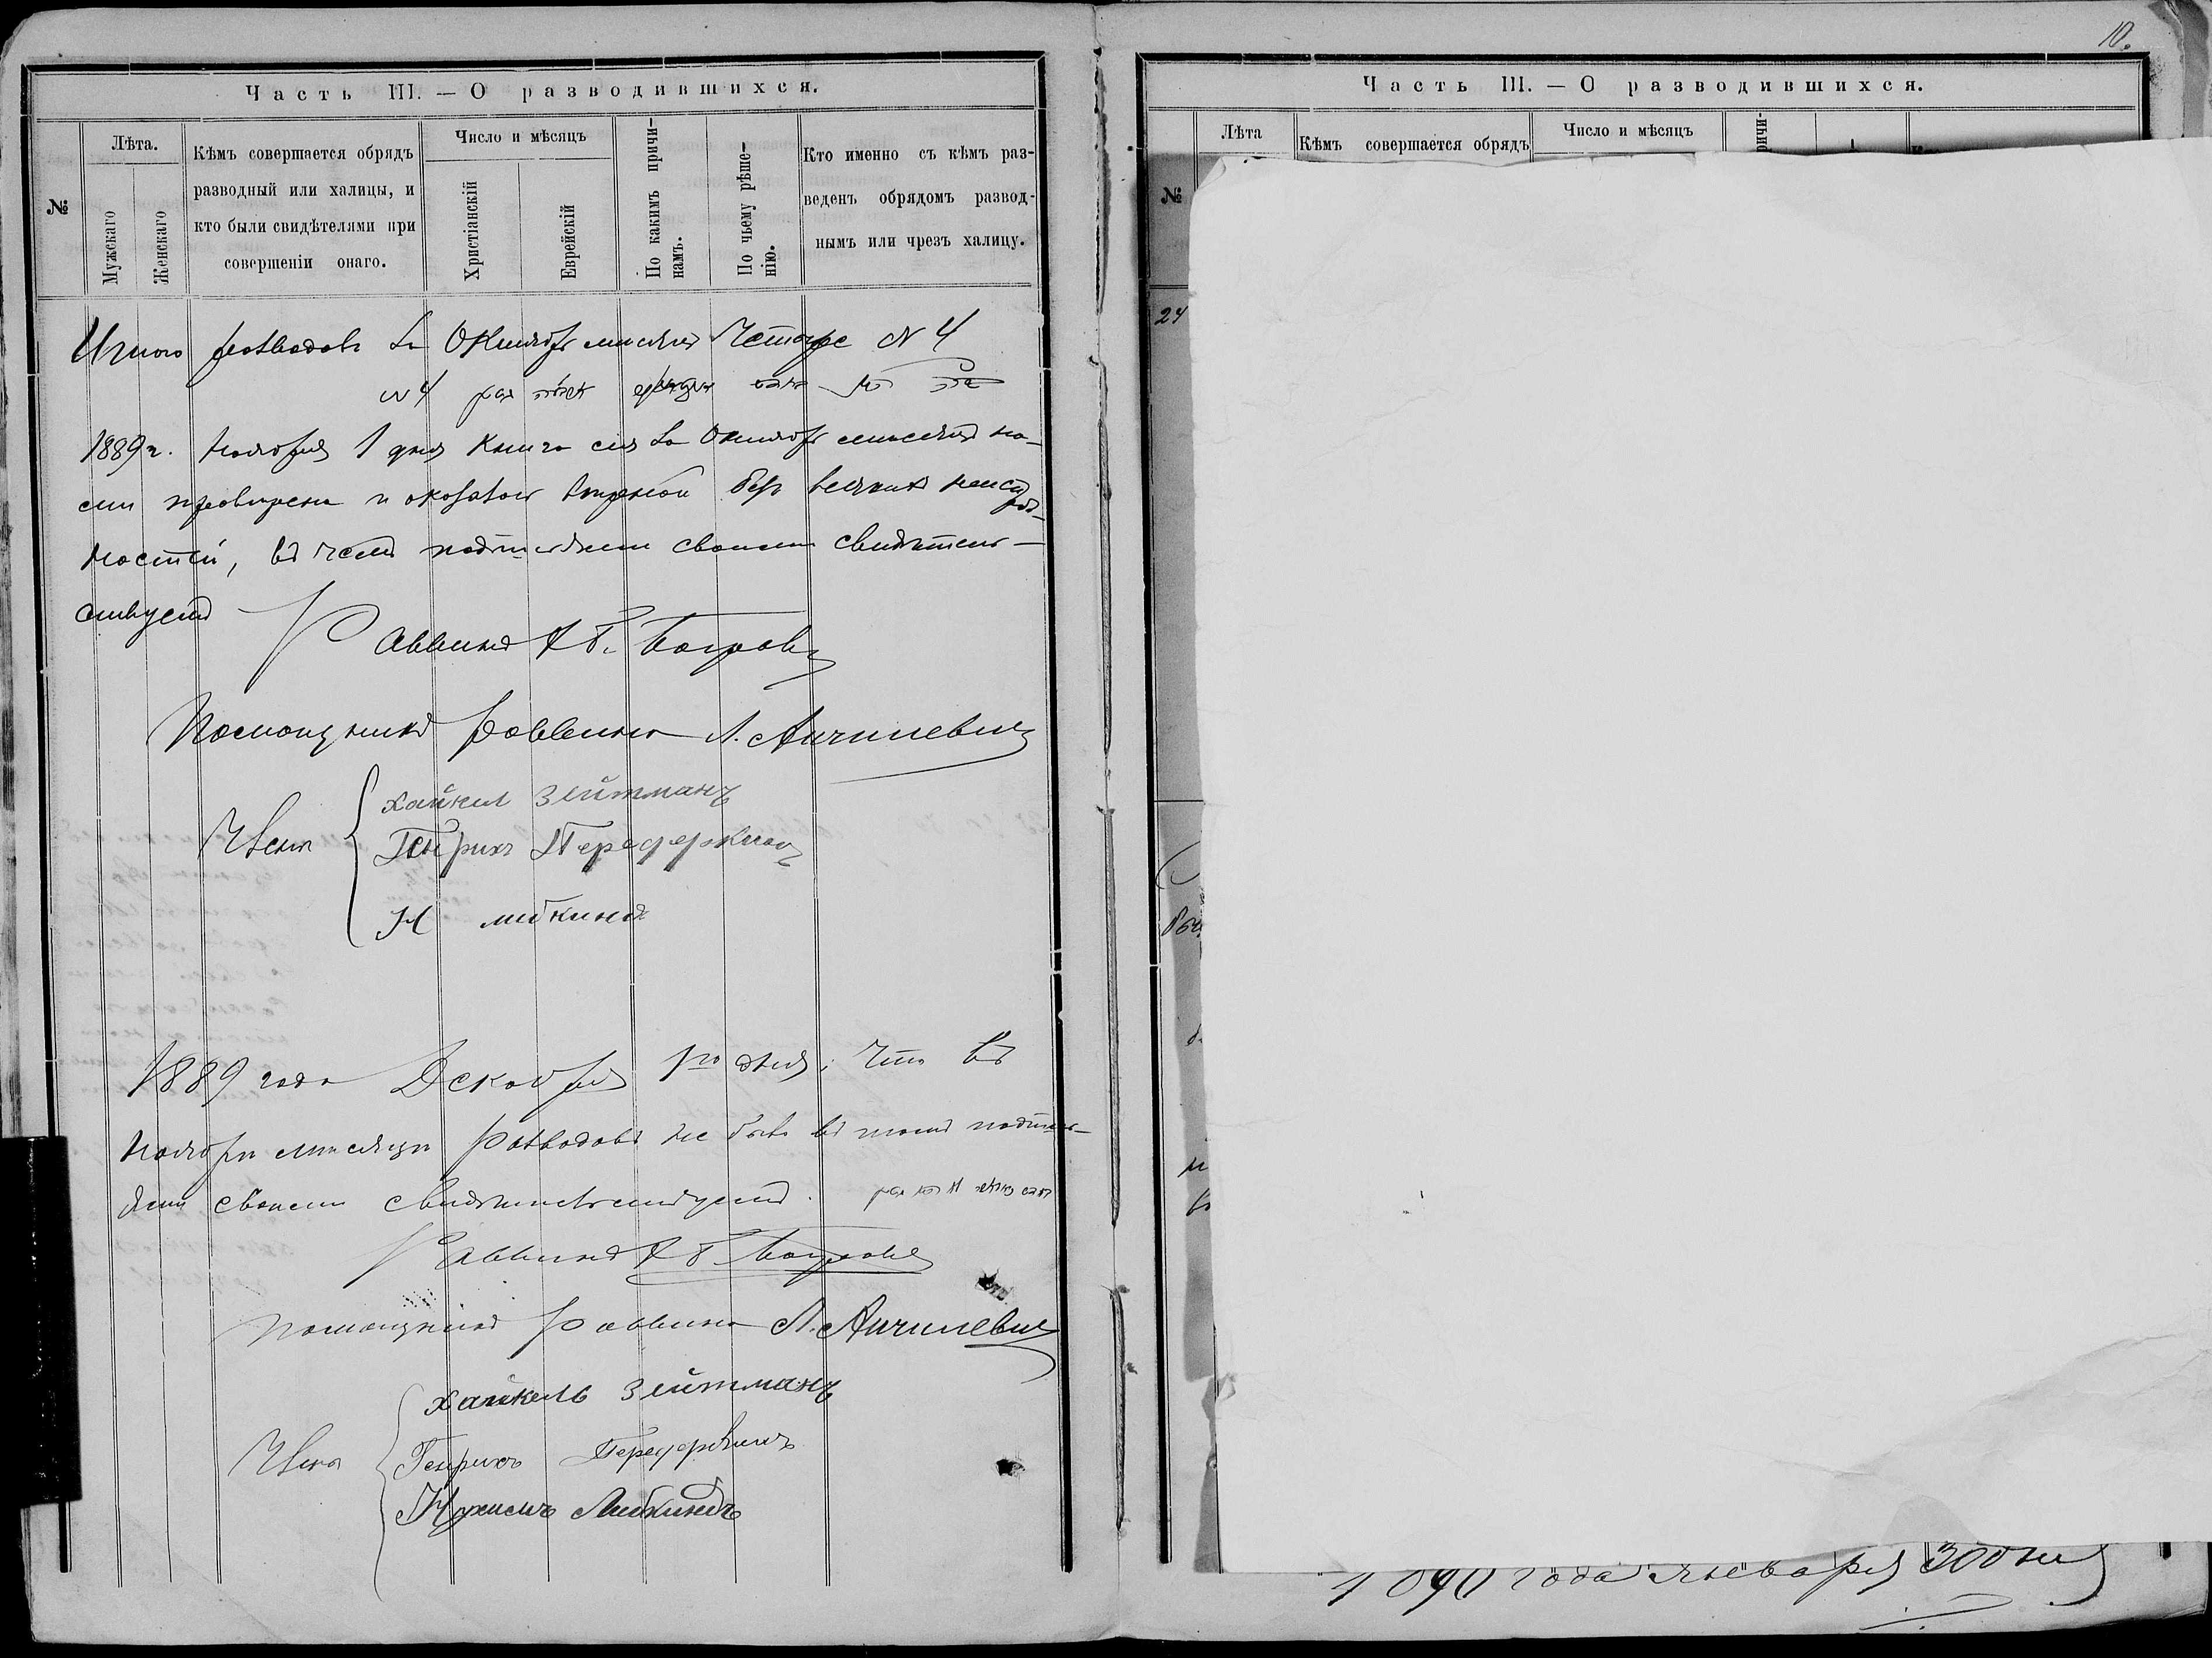 Часть III. — О разводившихся.
№
Лѣта.
Мужскаго
Женскаго
Кѣмъ совершается обрядъ
разводный или халицы, и
кто были свидѣтелями при
совершеніи онаго.
Число и мѣсяцъ
Христіанскій
Еврейскій
По какимъ причи-
намъ.
По чьему рѣше-
нію.
Кто именно съ кѣмъ раз-
веденъ обрядомъ развод-
нымъ или чрезъ халицу.
Итого разводовъ за Октябрь мѣсяцъ Четыре № 4
№ 4
1889 г. Ноября 1 дня Книга сія за Октябрь мѣсяцъ на-
ми провѣрена и оказалось вѣрной безъ всякихъ неисправ-
ностей, въ чемъ подписями своими свидѣтель-
ствуемъ
Раввинъ
Помощникъ Раввина Л. Анчилевич
Члены
Хайкел Зейтманъ
Генрихъ
Н Либкиндъ
1889 года Декабря 1го дня, что въ
Ноябрѣ мѣсяцѣ Разводовъ не было въ томъ подпися-
ями своими свидѣтельствуемъ.
Раввинъ
Помощникъ Раввина Л. Анчилевич
Члены
Хайкель Зейтманъ
Генрихъ
Нухимъ Либкиндъ
10.
Часть III. — О разводившихся.
№
Лѣта
Кѣмъ совершается обрядъ
Число и мѣсяцъ
24
1890 года Января 30 дня